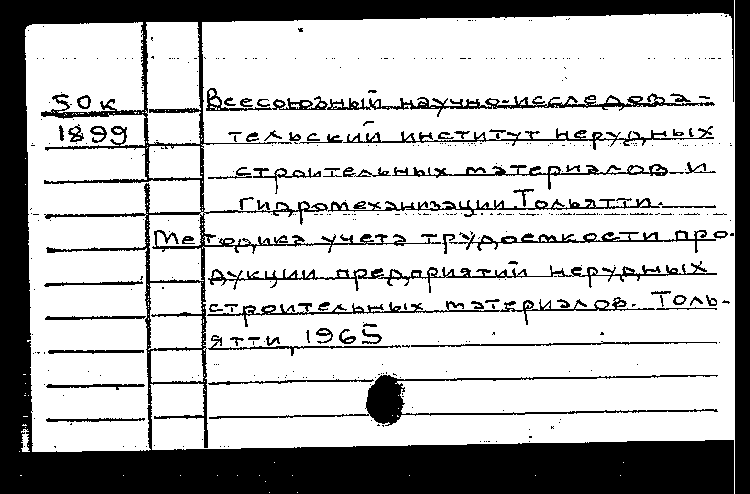 50к Всесоюзный научно-исследова-
1899 тельский институт нерудных
строительных материалов и
гидромеханизации. Тольятти.
Методика учета трудоемкости про-
дукции предприятий нерудных
строительных материалов. Толь-
ятти, 1965